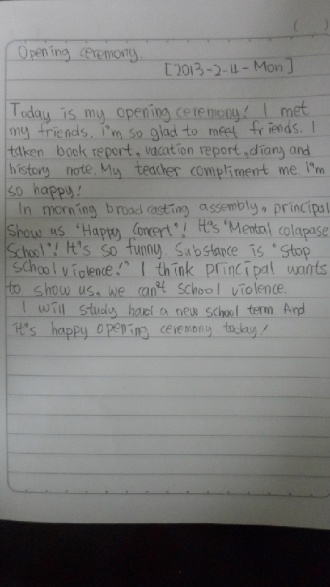 ( )
Opening ceremony.
[2013-2-4-Mon]
Today is my opening ceremony! I met
my friends. i'm so glad to meet friends. I
taken book report, vacation report, diary and
history note. My teacher compliment me. i'm
so happy!
In morning broadcasting assembly, principal
Show us "Happy Concert"! It's "Mental colapase
School"! It's so funny Substance is "Stop
school violence!" I think principal wants
to show us, we can't school violence.
I will study hard a new school term And
it's happy opening ceremony today!